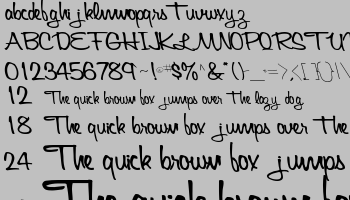 abcdefghijklmnopqrstuvwxyz
ABCDEFGHIJKLMNOPQRSTUV
0123456789~!@#$%^&*()-_+=>,<[]{}\
12 The quick brown fox jumps over the lazy dog
18 The quick brown fox jumps over the
24 The quick brown fox jumps
The quick brown fo